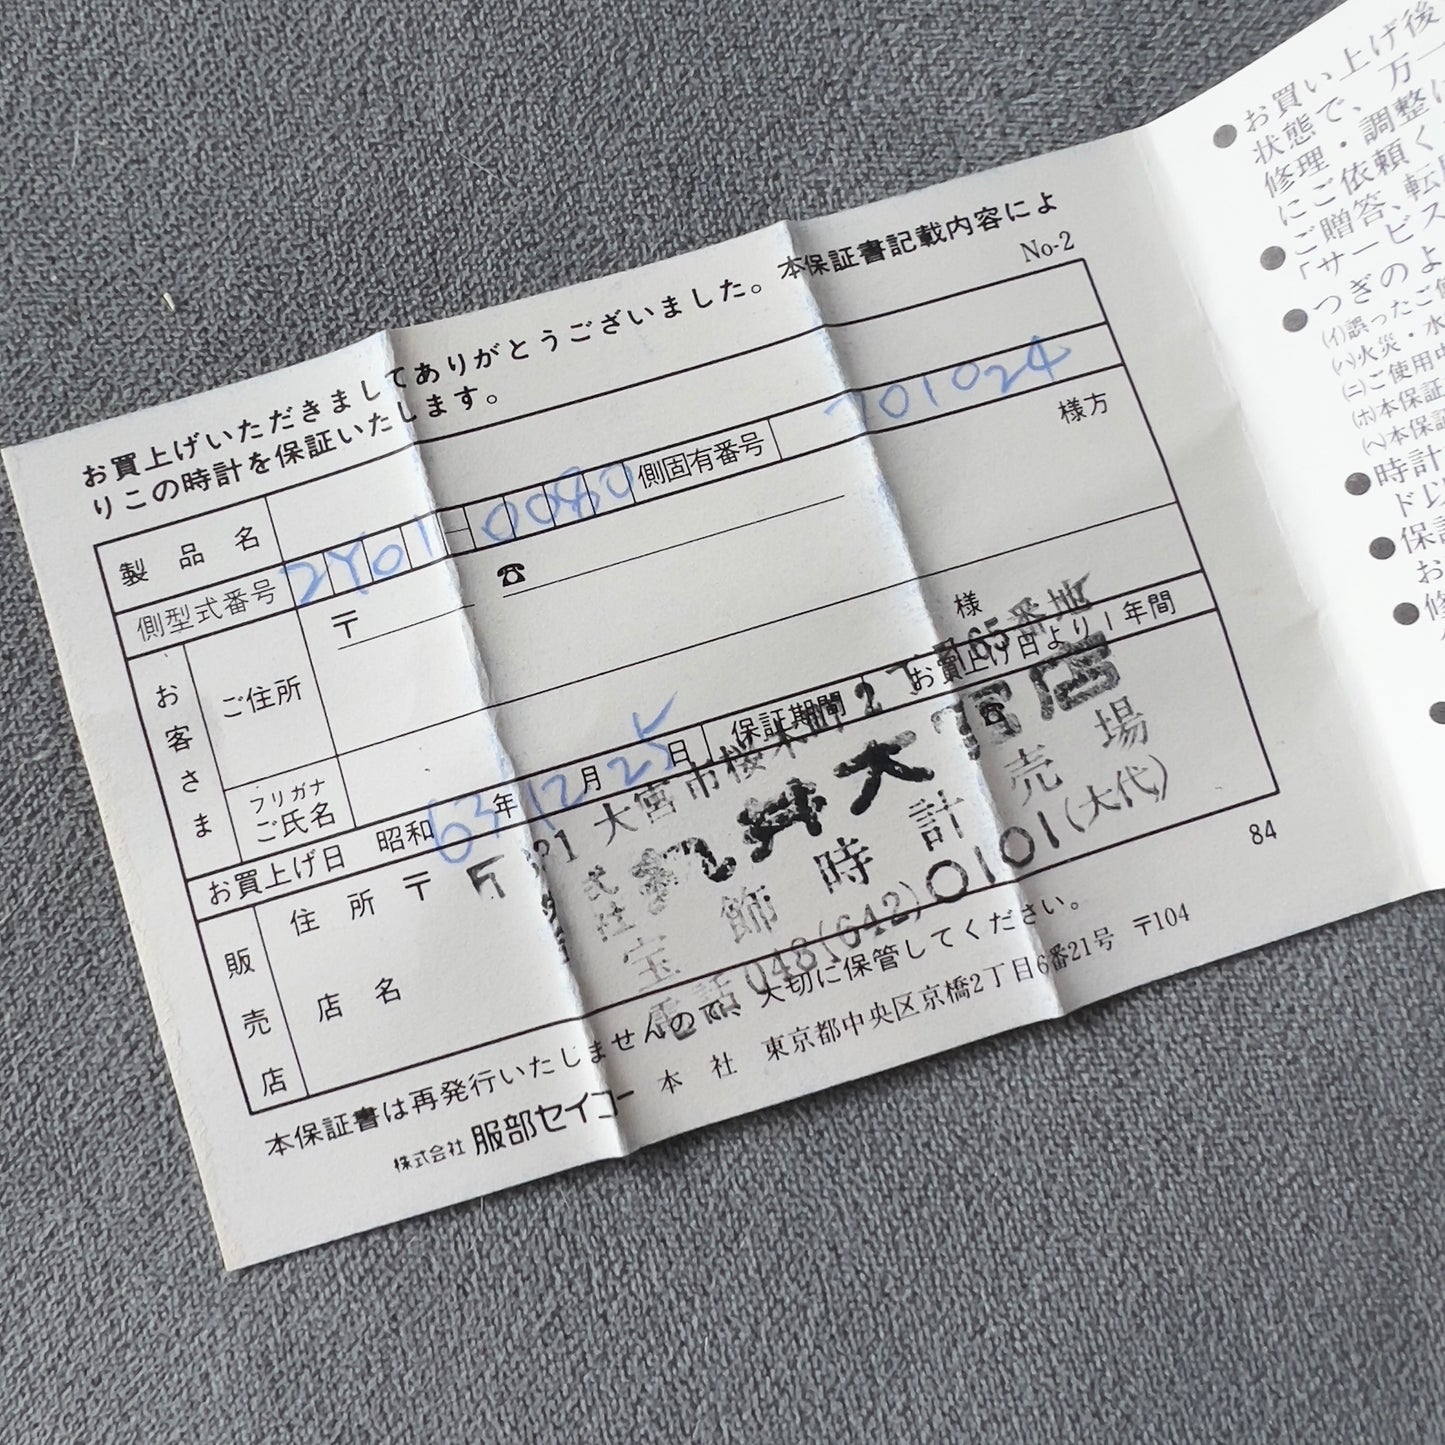 お買上げいただきましてありがとうございました。本保証書記載内容によ
りこの時計を保証いたします。
No-2
製品名
側型式番号 2Y01-0080 側固有番号 701024
お客さま
ご住所 〒 ☎
様方
フリガナ
ご氏名 様
お買上げ日 昭和63年12月25日 保証期間 お買上げ日より1年間
販売店
住所 〒 ☎
店名
大宮市桜木町2丁目 番地
宝飾時計売場
電話048(642)0101(大代)
84
本保証書は再発行いたしませんので、大切に保管してください。
株式会社 服部セイコー 本社 東京都中央区京橋2丁目6番21号 〒104
●お買い上げ後
状態で、万一
修理・調整
にご依頼く
●ご贈答、転
「サービス
●つぎのよ
(イ)誤ったご使
(ハ)火災・水
(ニ)ご使用中
(ホ)本保証
(ヘ)本保証
●時計
ド以
●保証
お
●修